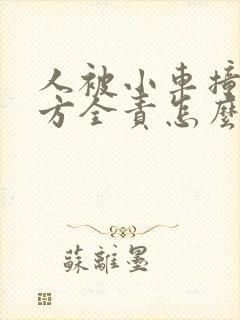 人被小車撞
方全責怎麼
蘇離墨